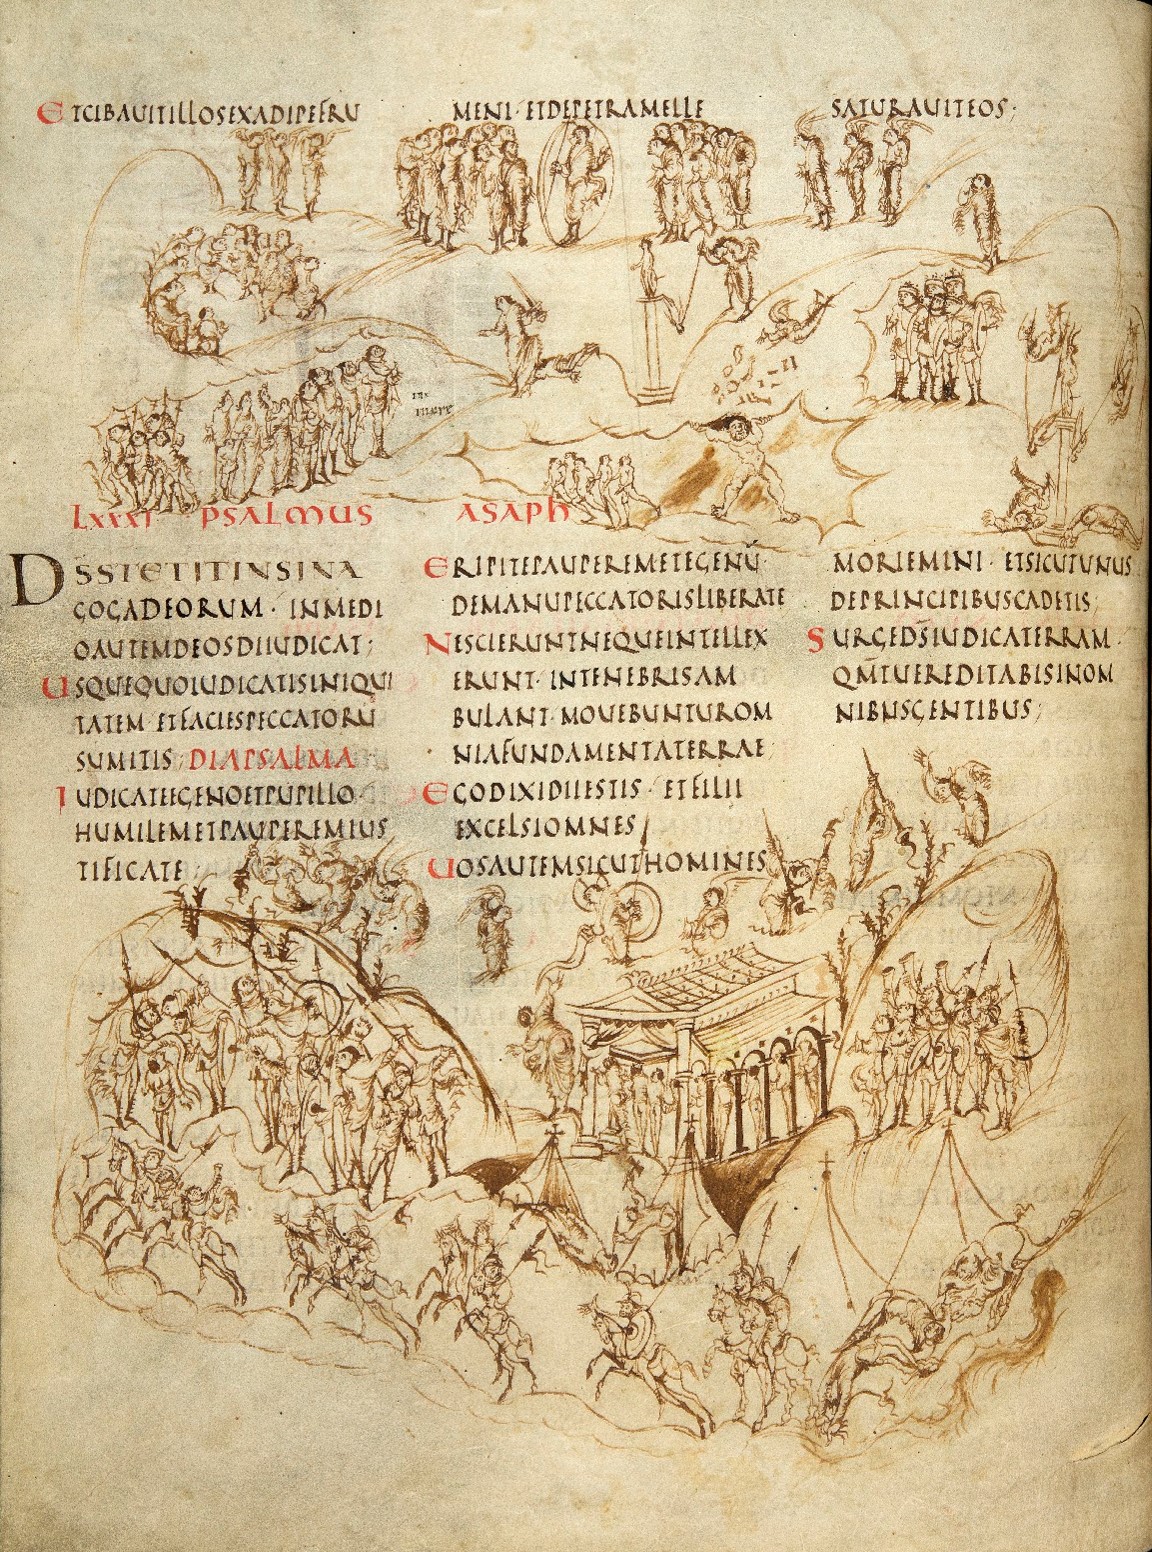 ETCIBAUITILLOSEXADIPEFRU
MENI · ETDEPETRAMELLE
SATURAUITEOS;
LXXXI PSALMUS ASAPH
DSSTETITINSINA
GOGADEORUM · INMEDI
OAUTEMDEOSDIIUDICAT;
USQUEQUOIUDICATISINIQUI
TATEM · ETFACIESPECCATORŪ
SUMITIS; DIAPSALMA
IUDICATEEGENOETPUPILLO·
HUMILEMETPAUPEREMIUS
TIFICATE
ERIPITEPAUPEREMETEGENŪ·
DEMANUPECCATORISLIBERATE
NESCIERUNTNEQUEINTELLEX
ERUNT · INTENEBRISAM
BULANT · MOUEBUNTUROM
NIAFUNDAMENTATERRAE;
EGODIXIDIIESTIS · ETFILII
EXCELSIOMNES
UOSAUTEMSICUTHOMINES
MORIEMINI · ETSICUTUNUS
DEPRINCIPIBUSCADETIS;
SURGED̄SIUDICATERRAM·
QM̄TUEREDITABISINOM
NIBUSGENTIBUS;